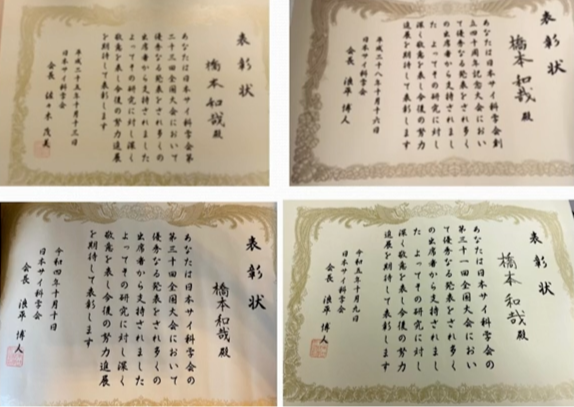 表彰状
橋本和哉殿
あなたは日本サイ科学会第
二十三回全国大会において
優秀なる発表をされ多くの
出席者から支持されました
よってその研究に対し深く
敬意を表し今後の努力進展
を期待して表彰します
平成二十五年十月十三日
日本サイ科学会
会長 佐々木茂美
表彰状
橋本和哉殿
あなたは日本サイ科学会創
立四十周年記念大会におい
て優秀なる発表をされ多く
の出席者から支持されまし
た よってその研究に対し
深く敬意を表し今後の努力
進展を期待して表彰します
平成二十八年十月十六日
日本サイ科学会
会長 浪平博人
表彰状
橋本和哉殿
あなたは日本サイ科学会の
第三十回全国大会において
優秀なる発表をされ多くの
出席者から支持されました
よってその研究に対し深く
敬意を表し今後の努力進展
を期待して表彰します
令和四年十月十日
日本サイ科学会
会長 浪平博人
表彰状
橋本和哉殿
あなたは日本サイ科学会の
第三十一回全国大会におい
て優秀なる発表をされ多く
の出席者から支持されまし
た よってその研究に対し
深く敬意を表し今後の努力
進展を期待して表彰します
令和五年十月九日
日本サイ科学会
会長 浪平博人